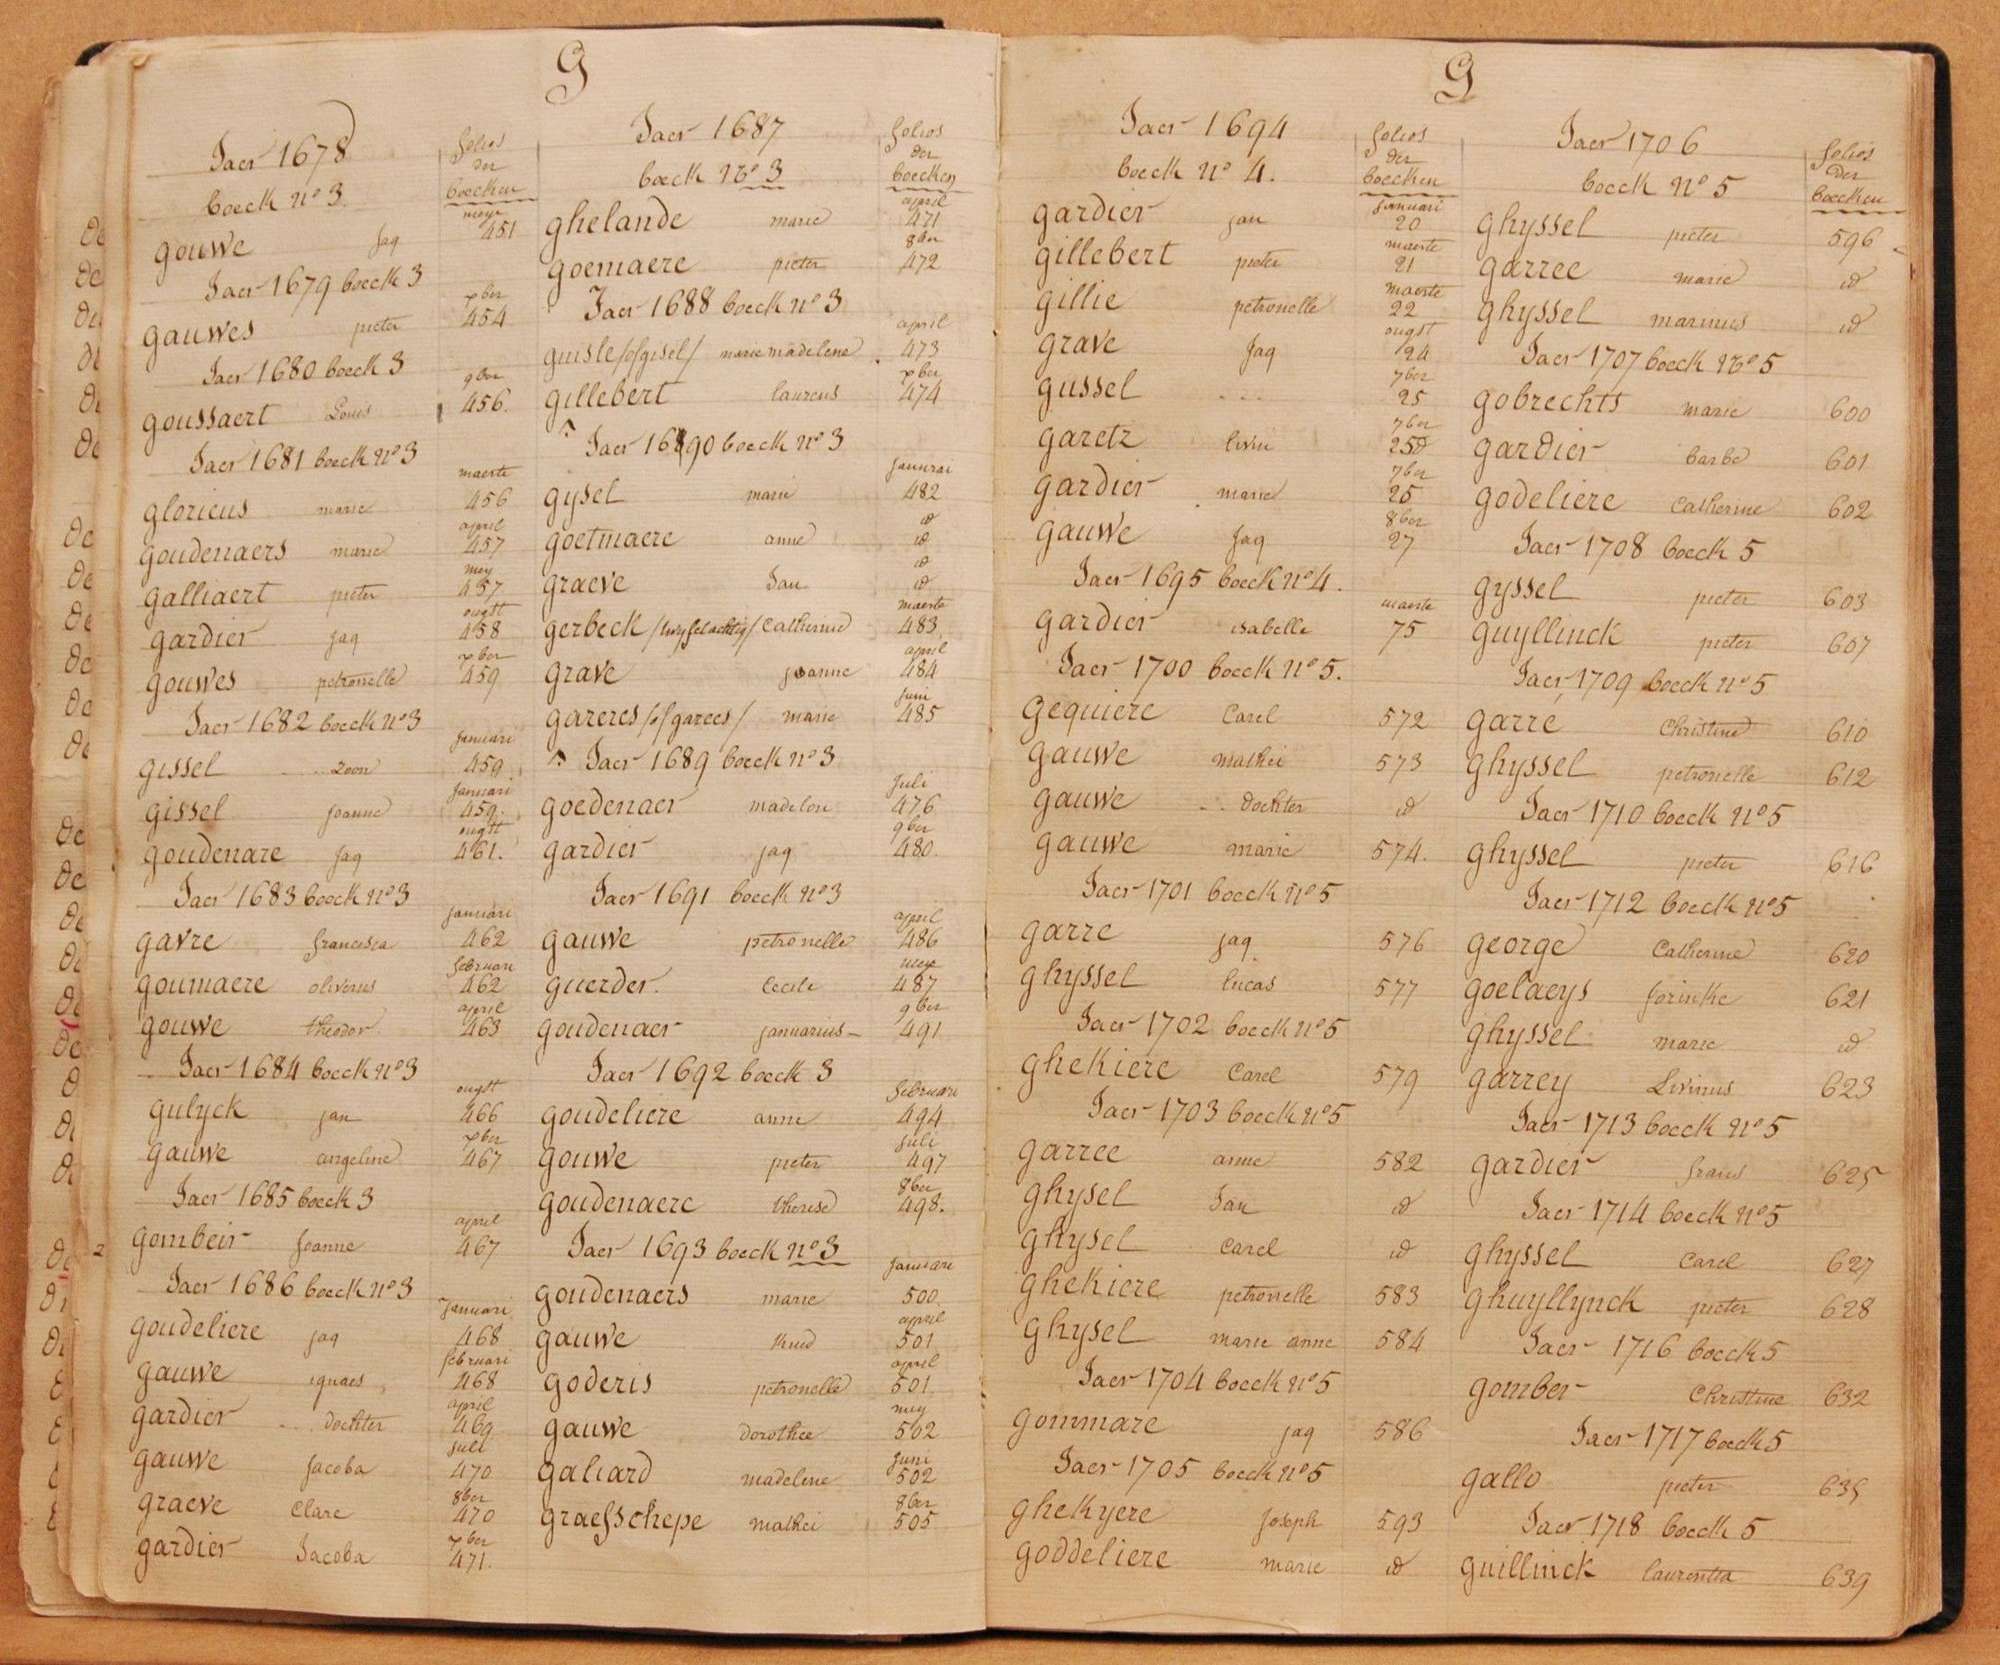 G
Jaer 1678
folios
der
boecken
boeck nº 3
meye
gouwe jaq 451
Jaer 1679 boeck 3
xber
gauwes pieter 454
Jaer 1680 boeck 3
9ber
goussaert Louis 456.
Jaer 1681 boeck nº 3
maerte
gloricus marie 456
april
goudenaers marie 457
mey
galliaert pieter 457
ougst
gardier jaq 458
xber
gouwes petronelle 459
Jaer 1682 boeck nº 3
januari
gissel ... zoon 459
januari
gissel joanne 459.
ougst
goudenare jaq 461.
Jaer 1683 boeck nº 3
januari
gavre francisca 462
februari
goumaere oliverus 462
april
gouwe theodor 463
Jaer 1684 boeck nº 3
ougst
gulyck jan 466
xber
gauwe angeline 467
Jaer 1685 boeck 3
april
gombeir joanne 467
Jaer 1686 boeck nº 3
januari
goudeliere jaq 468
februari
gauwe ignaes 468
april
gardier ... dochter 469
juli
gauwe jacoba 470
8ber
graeve Clare 470
xber
gardier Jacoba 471.
Jaer 1687
folios
der
boecken
boeck nº 3
april
ghelande marie 471
8ber
goemaere pieter 472
Jaer 1688 boeck nº 3
april
guisle /of gisel/ marie madelene 473
xber
gillebert laureus 474
Jaer 1690 boeck nº 3
januari
gysel marie 482
id
goetmaere anne id
id
graeve Jan id
maerte
gerbeck /twyfelachtig/ Catherine 483
april
grave joanne 484
juni
gareres /of garees/ marie 485
Jaer 1689 boeck nº 3
Juli
goedenaer madelon 476
9ber
gardier jaq 480.
Jaer 1691 boeck nº 3
april
gauwe petronelle 486
meye
guerder. Cecile 487
9ber
goudenaer januarius 491
Jaer 1692 boeck 3
februari
goudeliere anne 494
juli
gouwe pieter 497
8ber
goudenaere therese 498.
Jaer 1693 boeck nº 3
januari
goudenaers marie 500.
april
gauwe kind 501
april
goderis petronelle 501
mey
gauwe dorothee 502
juni
galiard madeleine 502
8ber
graefschepe mathei 505
G
Jaer 1694
folios
der
boecken
boeck nº 4.
januari
gardier jan 20
maerte
gillebert pieter 21
maerte
gillie petronelle 22
ougst
grave Jaq 24
7ber
gussel ... 25
7ber
garetz livin 25
7ber
gardier marie 25
8ber
gauwe Jaq 27
Jaer 1695 boeck nº 4.
maerte
gardier isabelle 75
Jaer 1700 boeck nº 5.
gequiere Carel 572
gauwe mathei 573
gauwe ... dochter id
gauwe marie 574.
Jaer 1701 boeck nº 5
garre jaq 576
ghyssel lucas 577
Jaer 1702 boeck nº 5
ghekiere Carel 579
Jaer 1703 boeck nº 5
garree anne 582
ghysel Jan id
ghysel Carel id
ghekiere petronelle 583
ghysel marie anne 584
Jaer 1704 boeck nº 5
gommare jaq 586
Jaer 1705 boeck nº 5
ghekyere joseph 593
goddeliere marie id
Jaer 1706
folios
der
boecken
boeck nº 5
ghyssel pieter 596
garree marie id
ghyssel marinus id
Jaer 1707 boeck nº 5
gobrechts marie 600
gardier barbe 601
godeliere Catherine 602
Jaer 1708 boeck 5
gyssel pieter 603
guyllinck pieter 607
Jaer 1709 boeck nº 5
garré Christine 610
ghyssel petronelle 612
Jaer 1710 boeck nº 5
ghyssel pieter 616
Jaer 1712 boeck nº 5
george Catherine 620
goelaeys jorinke 621
ghyssel marie id
garrey Livinus 623
Jaer 1713 boeck nº 5
gardier frans 625
Jaer 1714 boeck nº 5
ghyssel Carel 627
ghuyllynck pieter 628
Jaer 1716 boeck 5
gomber Christine 632
Jaer 1717 boeck 5
gallo pieter 635
Jaer 1718 boeck 5
guillinck laurentia 639